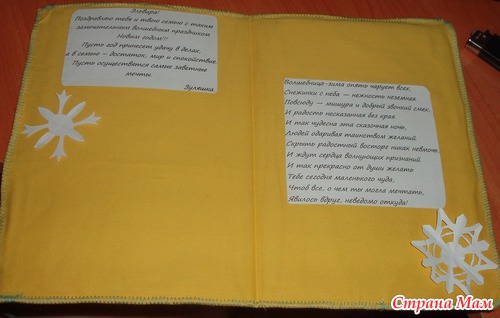 Эльвира!
Поздравляю тебя и твою семью с таким
замечательным волшебным праздником
Новым годом!!!
Пусть год принесет удачу в делах,
а в семью – достаток, мир и спокойствие.
Пусть осуществятся самые заветные
мечты.
Зуляшка
Волшебница-зима опять чарует всех,
Снежинки с неба — нежность неземная.
Повсюду — мишура и добрый звонкий смех,
И радость несказанная без края.
И так чудесна эта сказочная ночь,
Людей одаривая таинством желаний.
Скрыть радостный восторг никак невмочь,
И ждут сердца волнующих признаний.
И так прекрасно от души желать
Тебе сегодня маленького чуда,
Чтоб все, о чем ты могла мечтать,
Явилось вдруг, неведомо откуда!
Страна Мам